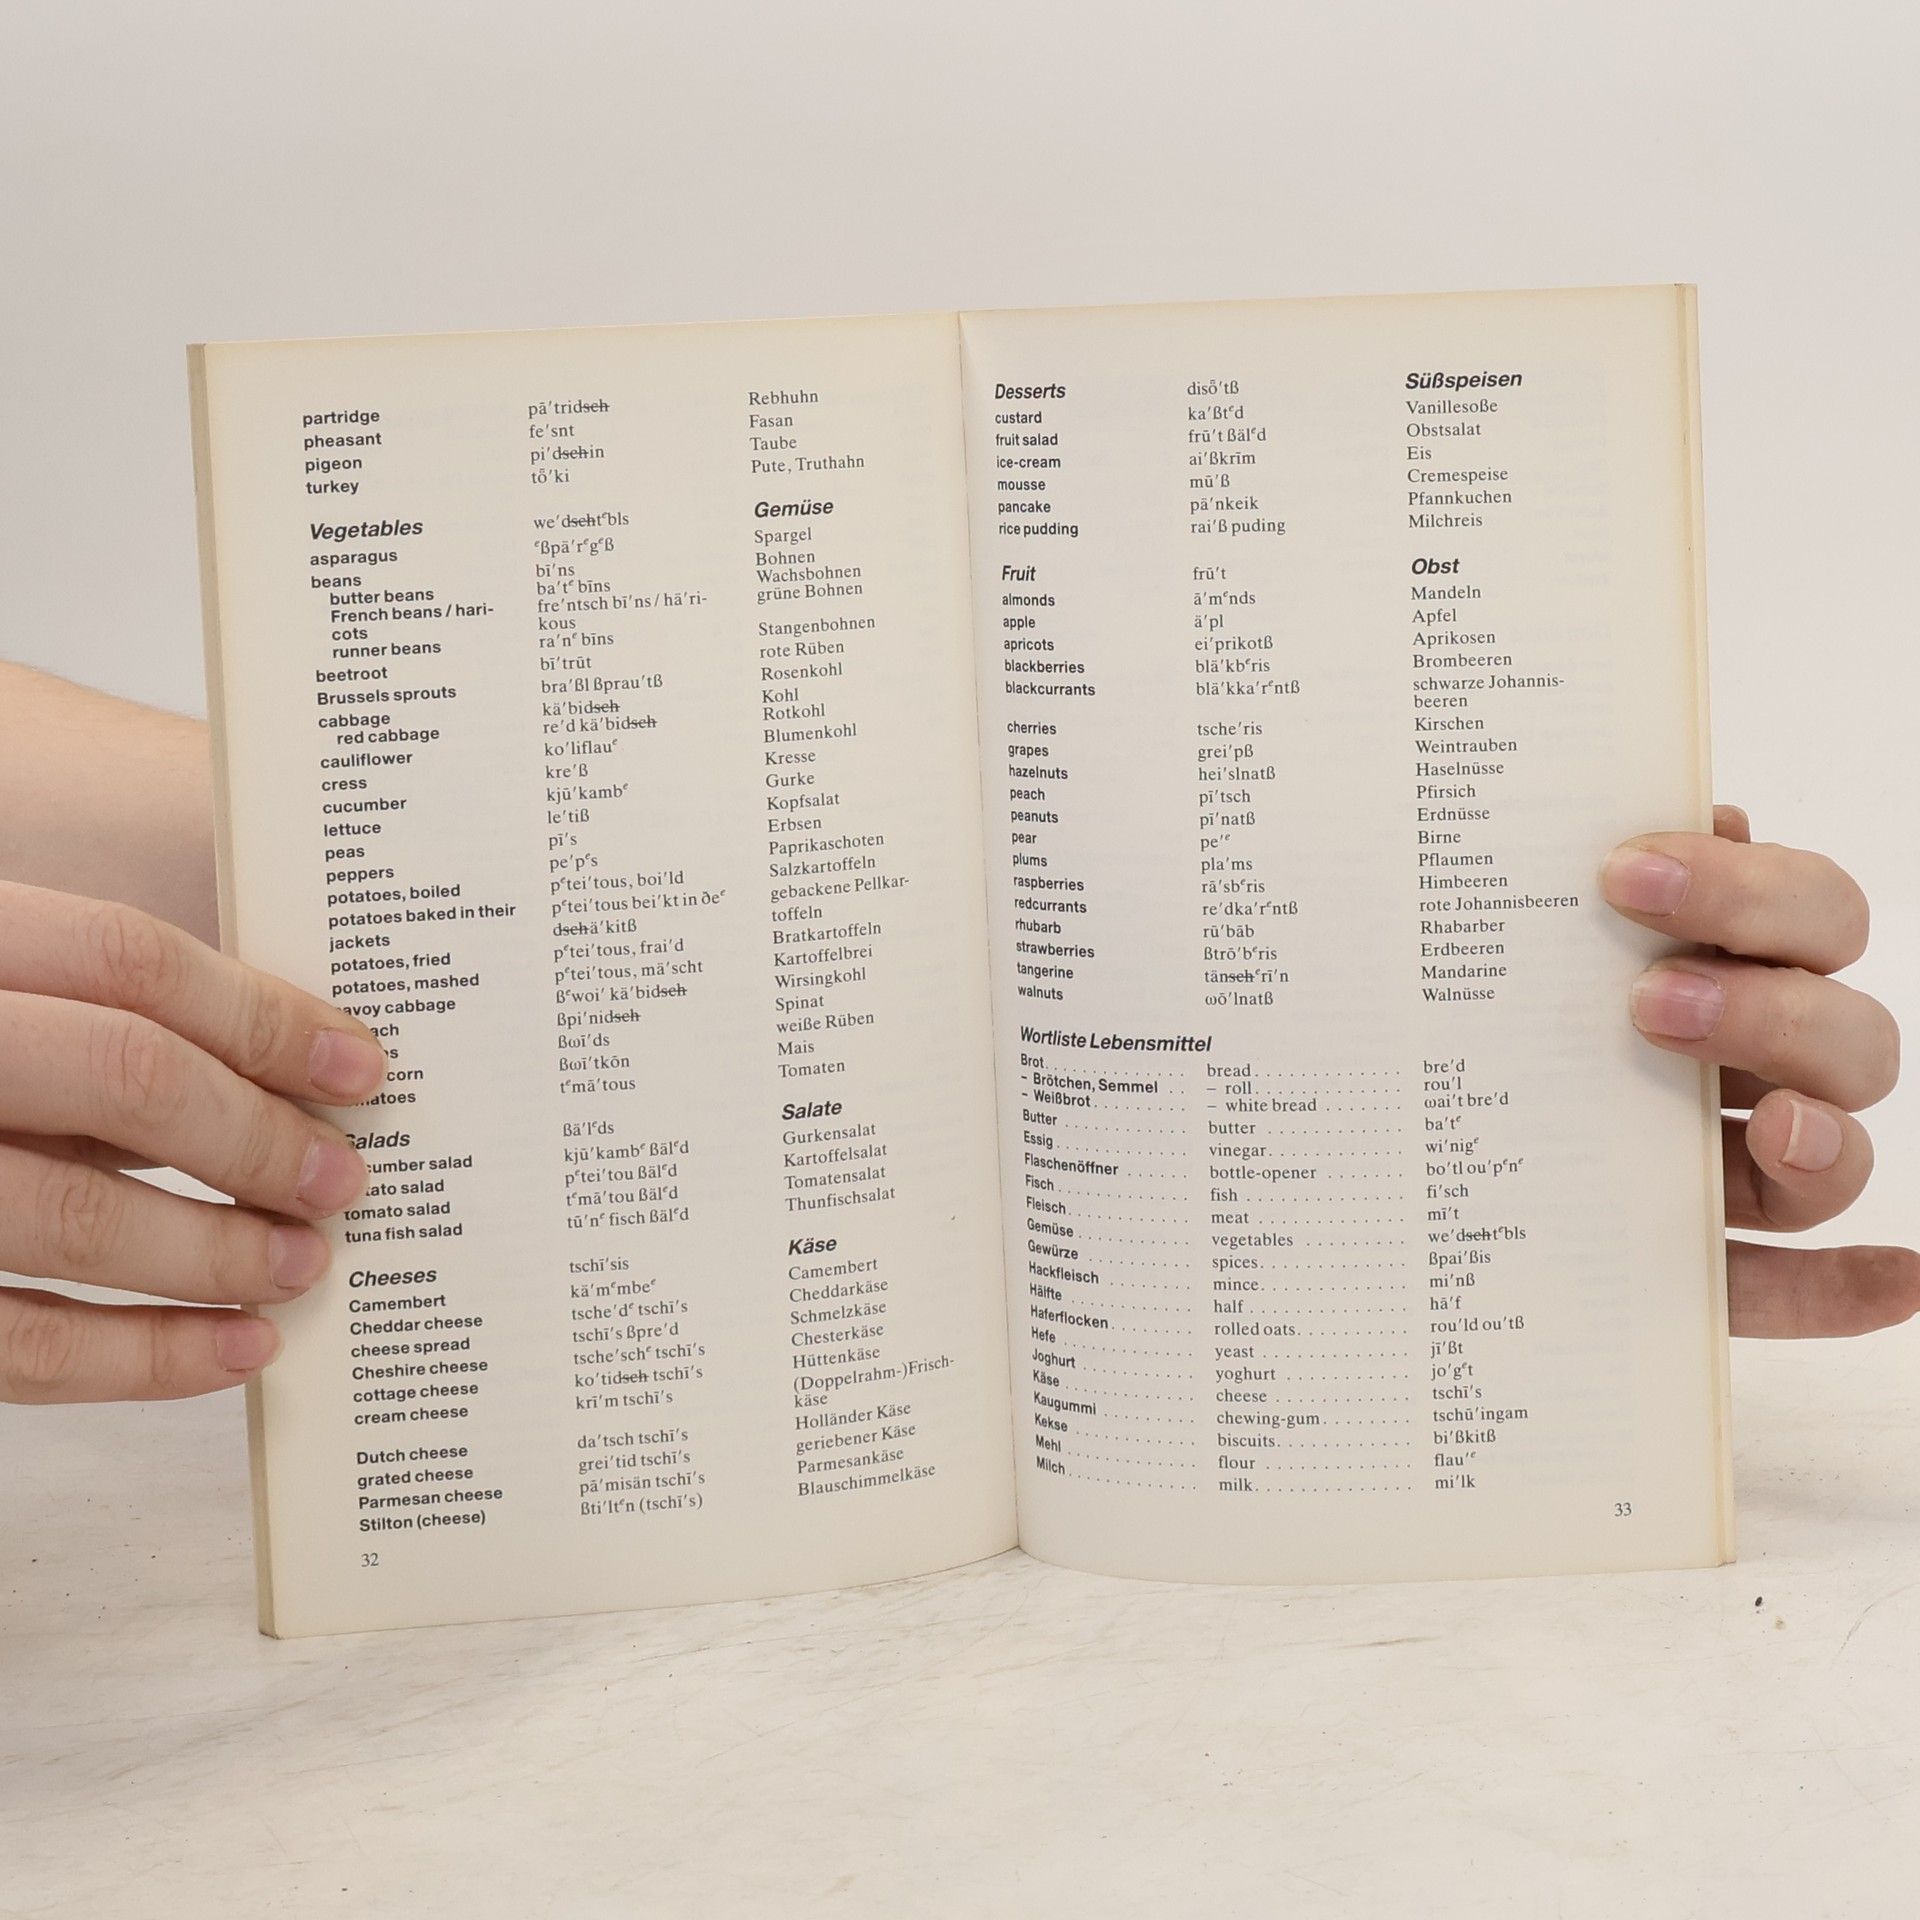 partridge pā′tridsch Rebhuhn
pheasant fe′snt Fasan
pigeon pi′dschin Taube
turkey tȫ′ki Pute, Truthahn
Vegetables we′dschtᵉbls Gemüse
asparagus ᵉßpä′rᵉgᵉß Spargel
beans bī′ns Bohnen
butter beans ba′tᵉ bīns Wachsbohnen
French beans / hari- fre′ntsch bī′ns / hä′ri- grüne Bohnen
cots kous
runner beans ra′nᵉ bīns Stangenbohnen
beetroot bī′trūt rote Rüben
Brussels sprouts bra′ßl ßprau′tß Rosenkohl
cabbage kä′bidsch Kohl
red cabbage re′d kä′bidsch Rotkohl
cauliflower ko′liflauᵉ Blumenkohl
cress kre′ß Kresse
cucumber kjū′kambᵉ Gurke
lettuce le′tiß Kopfsalat
peas pī′s Erbsen
peppers pe′pᵉs Paprikaschoten
potatoes, boiled pᵉtei′tous, boi′ld Salzkartoffeln
potatoes baked in their pᵉtei′tous bei′kt in ðeᵉ gebackene Pellkar-
jackets dschä′kitß toffeln
potatoes, fried pᵉtei′tous, frai′d Bratkartoffeln
potatoes, mashed pᵉtei′tous, mä′scht Kartoffelbrei
avoy cabbage ßᵉwoi′ kä′bidsch Wirsingkohl
ach ßpi′nidsch Spinat
s ßωī′ds weiße Rüben
corn ßωī′tkōn Mais
matoes tᵉmā′tous Tomaten
Salads ßä′lᵉds Salate
cumber salad kjū′kambᵉ ßälᵉd Gurkensalat
tato salad pᵉtei′tou ßälᵉd Kartoffelsalat
tomato salad tᵉmā′tou ßälᵉd Tomatensalat
tuna fish salad tū′nᵉ fisch ßälᵉd Thunfischsalat
Cheeses tschī′sis Käse
Camembert kä′mᵉmbeᵉ Camembert
Cheddar cheese tsche′dᵉ tschī′s Cheddarkäse
cheese spread tschī′s ßpre′d Schmelzkäse
Cheshire cheese tsche′schᵉ tschī′s Chesterkäse
cottage cheese ko′tidsch tschī′s Hüttenkäse
cream cheese krī′m tschī′s (Doppelrahm-)Frisch-
käse
Dutch cheese da′tsch tschī′s Holländer Käse
grated cheese grei′tid tschī′s geriebener Käse
Parmesan cheese pā′misän tschī′s Parmesankäse
Stilton (cheese) ßti′ltᵉn (tschī′s) Blauschimmelkäse
32
Desserts disȫ′tß Süßspeisen
custard ka′ßtᵉd Vanillesoße
fruit salad frū′t ßälᵉd Obstsalat
ice-cream ai′ßkrīm Eis
mousse mū′ß Cremespeise
pancake pä′nkeik Pfannkuchen
rice pudding rai′ß puding Milchreis
Fruit frū′t Obst
almonds ā′mᵉnds Mandeln
apple ä′pl Apfel
apricots ei′prikotß Aprikosen
blackberries blä′kbᵉris Brombeeren
blackcurrants blä′kka′rᵉntß schwarze Johannis-
beeren
cherries tsche′ris Kirschen
grapes grei′pß Weintrauben
hazelnuts hei′slnatß Haselnüsse
peach pī′tsch Pfirsich
peanuts pī′natß Erdnüsse
pear pe′ᵉ Birne
plums pla′ms Pflaumen
raspberries rā′sbᵉris Himbeeren
redcurrants re′dka′rᵉntß rote Johannisbeeren
rhubarb rū′bāb Rhabarber
strawberries ßtrō′bᵉris Erdbeeren
tangerine tänschᵉrī′n Mandarine
walnuts ωō′lnatß Walnüsse
Wortliste Lebensmittel
Brot . . . . . bread . . . . . bre′d
– Brötchen, Semmel . . – roll . . . . . rou′l
– Weißbrot . . . . . – white bread . . . . . ωai′t bre′d
Butter . . . . . butter . . . . . ba′tᵉ
Essig . . . . . vinegar . . . . . wi′nigᵉ
Flaschenöffner . . . . . bottle-opener . . . . . bo′tl ou′pᵉnᵉ
Fisch . . . . . fish . . . . . fi′sch
Fleisch . . . . . meat . . . . . mī′t
Gemüse . . . . . vegetables . . . . . we′dschtᵉbls
Gewürze . . . . . spices . . . . . ßpai′ßis
Hackfleisch . . . . . mince . . . . . mi′nß
Hälfte . . . . . half . . . . . hā′f
Haferflocken . . . . . rolled oats . . . . . rou′ld ou′tß
Hefe . . . . . yeast . . . . . jī′ßt
Joghurt . . . . . yoghurt . . . . . jo′gᵉt
Käse . . . . . cheese . . . . . tschī′s
Kaugummi . . . . . chewing-gum . . . . . tschū′ingam
Kekse . . . . . biscuits . . . . . bi′ßkitß
Mehl . . . . . flour . . . . . flau′ᵉ
Milch . . . . . milk . . . . . mi′lk
33